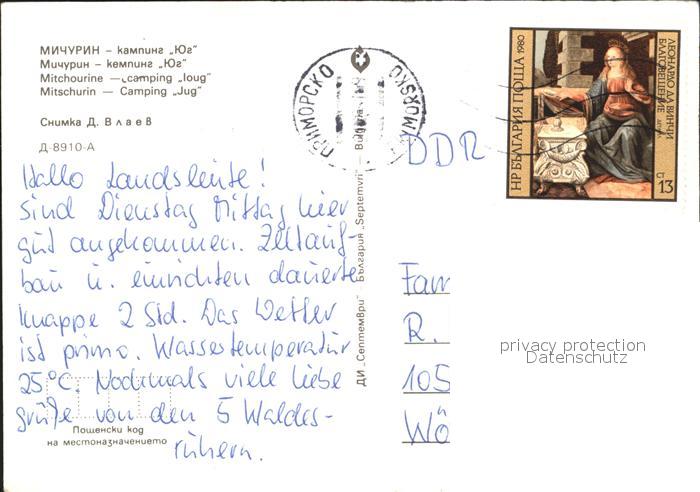 МИЧУРИН – кампинг „Юг“
Мичурин – кемпинг „Юг“
Mitchourine — camping „Ioug“
Mitschurin — Camping „Jug“
Снимка Д. Влаев
Д-8910-А
Hallo Landsleute!
sind Dienstag Mittag hier
gut angekommen. Zeltauf-
bau u. einrichten dauerte
knappe 2 Std. Das Wetter
ist primo. Wassertemperatur
25°C. Nochmals viele liebe
grüße von den 5 Waldes-
rühern.
Пощенски код
на местоназначението
ДИ „Септември“ България „Septemvri“ — Bulgaria
ПРИМОРСКО
PRIMORSKO
НР БЪЛГАРИЯ ПОЩА 1980
ЛЕОНАРДО ДА ВИНЧИ
БЛАГОВЕЩЕНИЕ
13
DDR
Fam
R.
105
Wö
privacy protection
Datenschutz